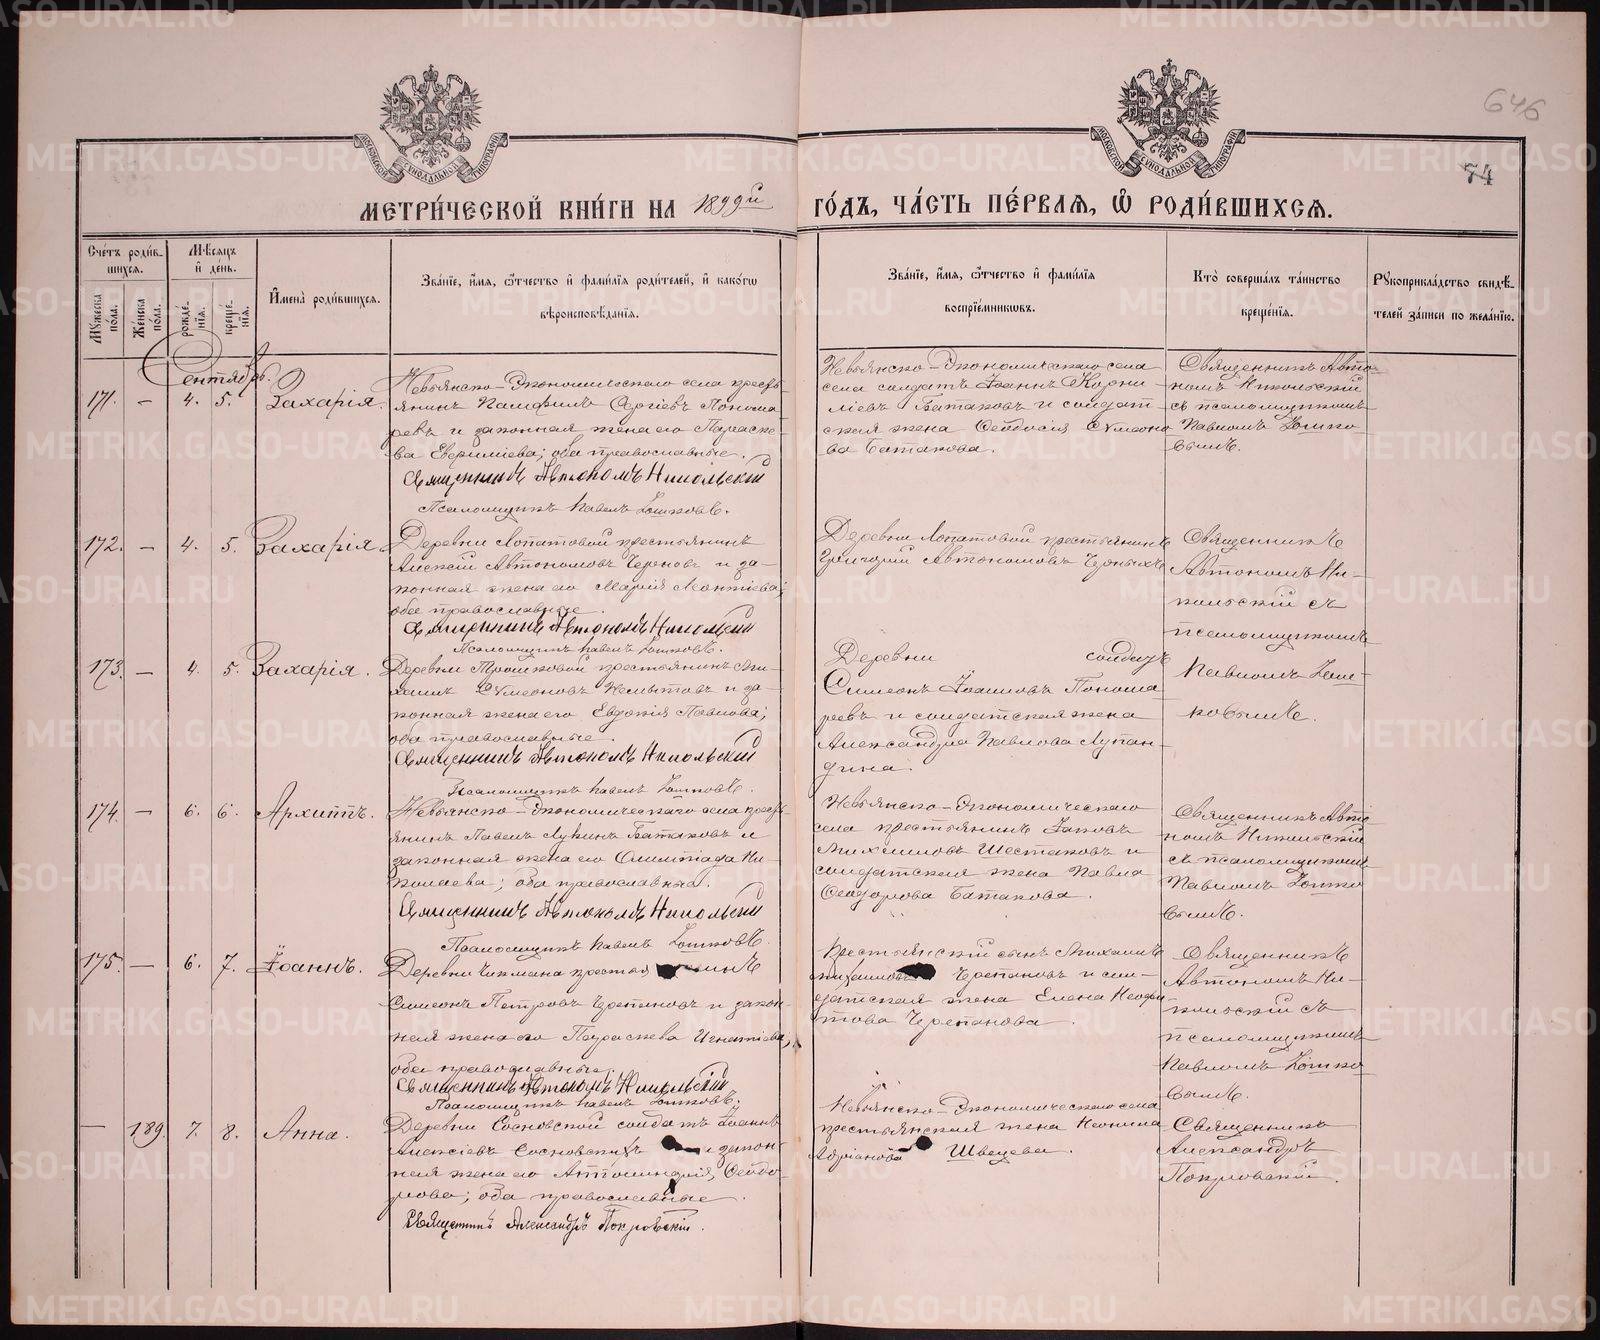 646
74
МЕТРИ́ЧЕСКОЙ КНИ́ГИ НА 1899й
ГО́ДЪ, ЧА́СТЬ ПЕ́РВАЯ, Ѽ РОДИ́ВШИХСЯ.
Сче́тъ роди́в-
шихся.
Мѣ́сяцъ
и҆ де́нь.
Мꙋ́жеска по́ла.
Же́нска по́ла.
рожде́нїя.
креще́нїя.
И҆мена̀ роди́вшихся.
Зва́нїе, и҆́мя, ѻ҆́тчество и҆ фами́лїя роди́телей, и҆ како́гѡ
вѣроисповѣ́данїя.
Зва́нїе, и҆́мя, ѻ҆́тчество и҆ фами́лїя
воспрїе́мниковъ.
Кто̀ соверша́лъ та́инство
креще́нїя.
Рꙋкоприкла́дство свидѣ́-
телей за́писи по жела́нїю.
Сентябрь.
171. – 4. 5. Захарія.
Невьянско-Экономическаго села кресть-
янинъ Памфилъ Сергіевъ Понома-
ревъ и законная жена его Параске-
ва Евфиміева; оба православные.
Священникъ Автономъ Никольскій
Псаломщикъ Павелъ Кошковъ.
Невьянско-Экономическаго села
села солдатъ Іоаннъ Корни-
ліевъ Батаковъ и солдат-
ская жена Ѳеодосія Сѵмеоно
ва Батакова.
Священникъ Авто-
номъ Никольскій
съ псаломщикомъ
Павломъ Кошко
вымъ.
172. – 4. 5. Захарія
Деревни Лопатовой крестьянинъ
Алексій Автономовъ Черновъ и за-
конная жена его Марія
обе православные.
Священникъ Автономъ Никольскій
Псаломщикъ Павелъ Кошковъ.
Деревни Лопатовой крестьянинъ
Григорий Автономовъ Черныхъ
Священникъ
Автономъ Ни-
кольскій съ
псаломщикомъ
Павломъ Кош-
ковымъ.
173. – 4. 5. Захарія.
Деревни крестьянинъ Ми-
хаилъ Сѵмеоновъ и за-
конная жена его Евдокія Павлова;
оба православные.
Священникъ Автономъ Никольскій
Псаломщикъ Павелъ Кошковъ.
Деревни солдатъ
Симеонъ Іоанновъ Понома
ревъ и солдатская жена
Александра Павлова Лупан-
дина.
174. – 6. 6. Архиппъ.
Невьянско-Экономическаго села кресть-
янинъ Павелъ Лукинъ Батаковъ и
законная жена его Олимпіада Ни-
колаева; оба православны.
Священникъ Автономъ Никольскій
Псаломщикъ Павелъ Кошковъ.
Невьянско-Экономическаго
села крестьянинъ Іаковъ
Михаиловъ Шестаковъ и
солдатская жена Павла
Ѳеодорова Батакова.
Священникъ Авто
номъ Никольскій
съ псаломщикомъ
Павломъ Кошко
вымъ.
175. – 6. 7. Іоаннъ.
Деревни Чикмана крестья
Симеонъ Петровъ Черепановъ и закон-
ная жена его Параскева Игнатіева;
оба православные.
Священникъ Автономъ Никольскій
Псаломщикъ Павелъ Кошковъ.
Крестьянскій сынъ Михаилъ
Черепановъ и сол-
датская жена Елена Неофи
това Черепанова.
Священникъ
Автономъ Ни-
кольскій съ
псаломщикомъ
Павломъ Кошко
вымъ.
– 189. 7. 8. Анна.
Деревни Сосновской солдатъ Іоаннъ
Алексіевъ Сосновскихъ и закон-
ная жена его Ѳеодо-
рова; оба православные.
Священникъ Александръ Покровскій.
Невьянско-Экономическаго села
крестьянская жена Неонила
Адріанова Швецева.
Священникъ
Александръ
Покровскій.